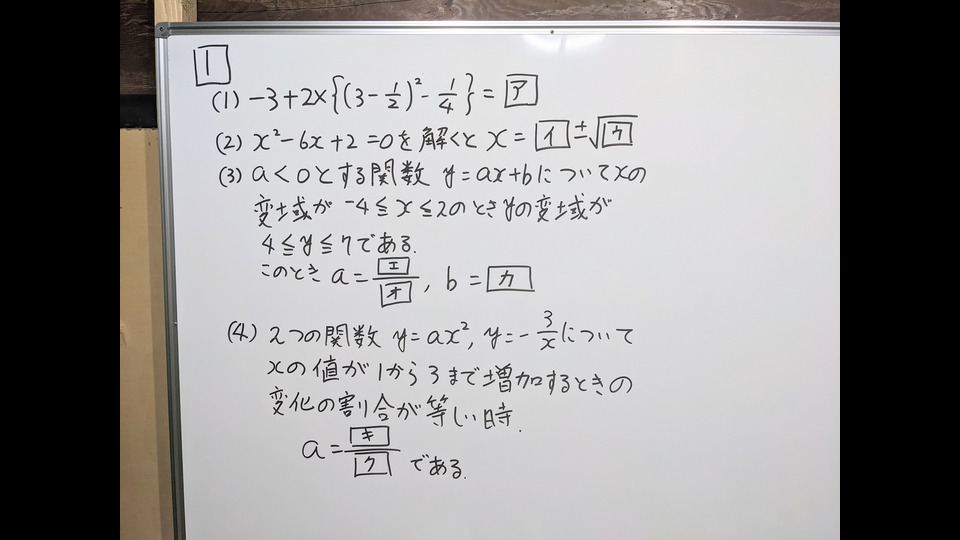 1
(1) -3+2×{(3-1/2)²-1/4}=ア
(2) x²-6x+2=0を解くと x=イ±√ウ
(3) a<0とする関数 y=ax+bについてxの
変域が -4≦x≦2のときyの変域が
4≦y≦7である.
このとき a=エ/オ, b=カ
(4) 2つの関数 y=ax², y=-3/xについて
xの値が1から3まで増加するときの
変化の割合が等しい時.
a=キ/ク である.